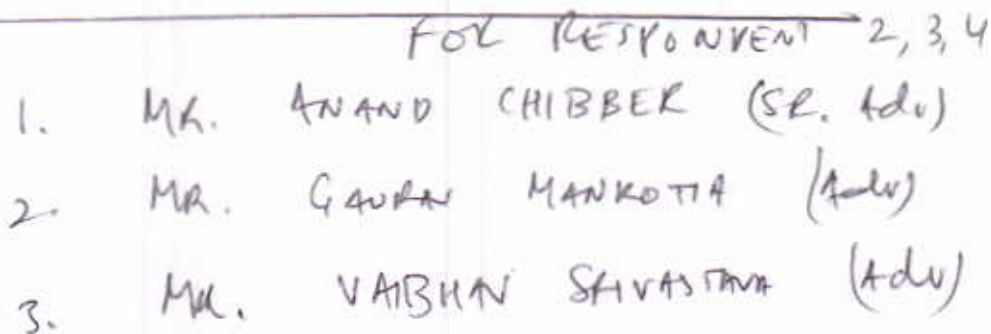 FOR RESPONDENT 2, 3, 4
1. MR. ANAND CHIBBER (SR. Adv)
2. MR. GAURAV MANKOTIA (Adv)
3. MR. VAIBHAV SRIVASTAVA (Adv)